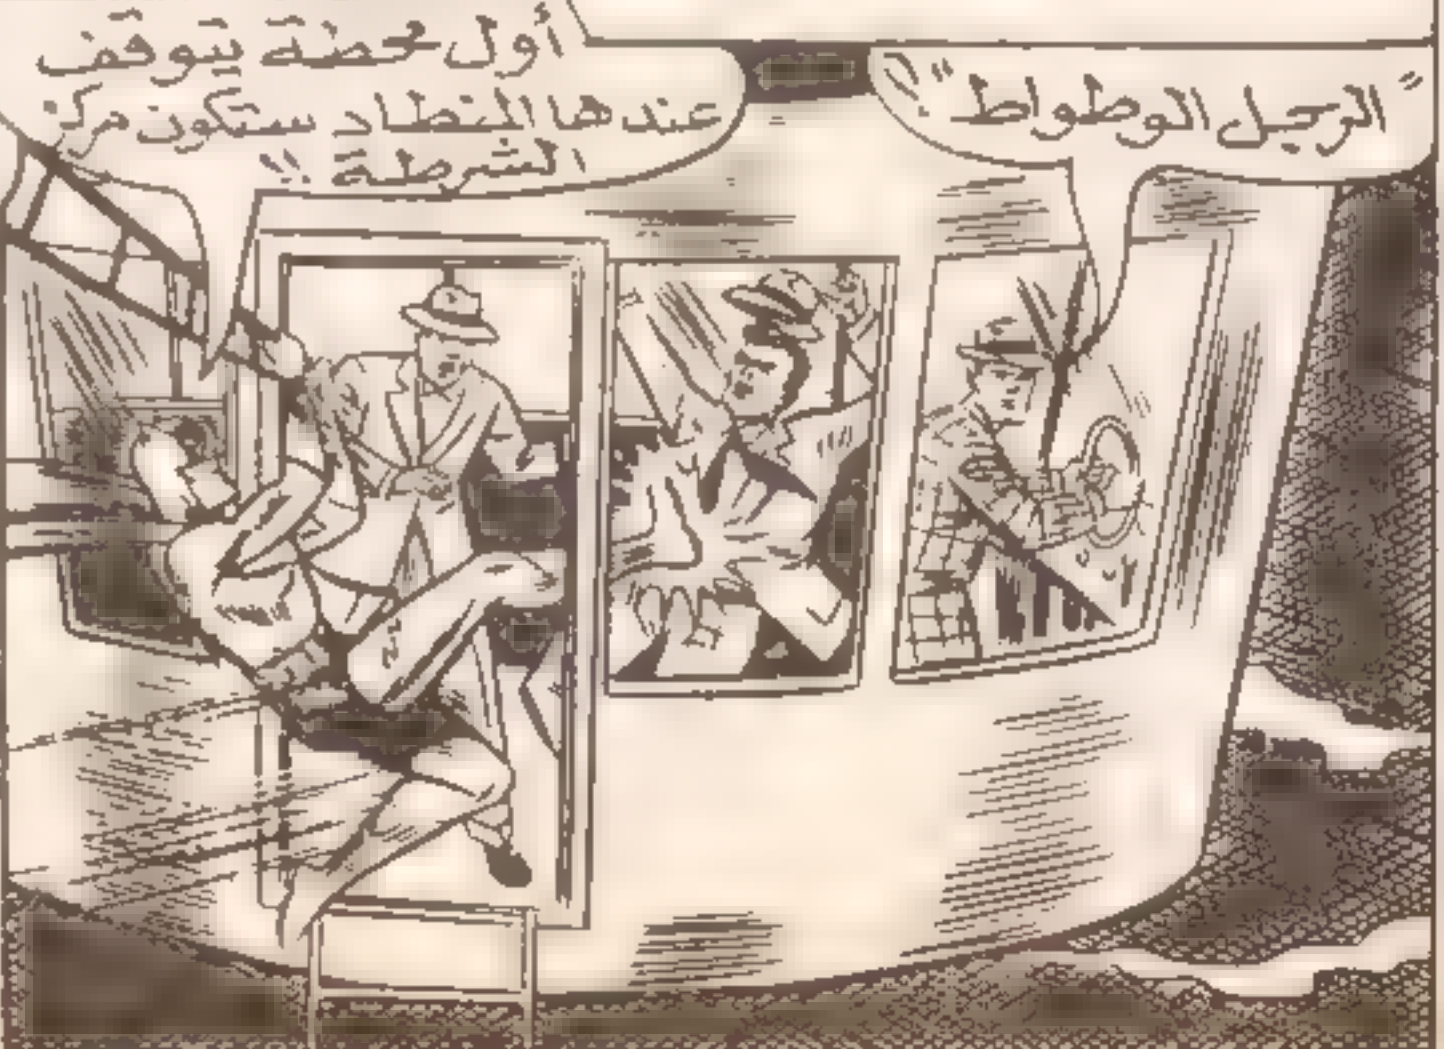 "الرجل الوطواط"!
أول محضة يتوقف
عندها المنطاد ستكون مركز
الشرطة !!